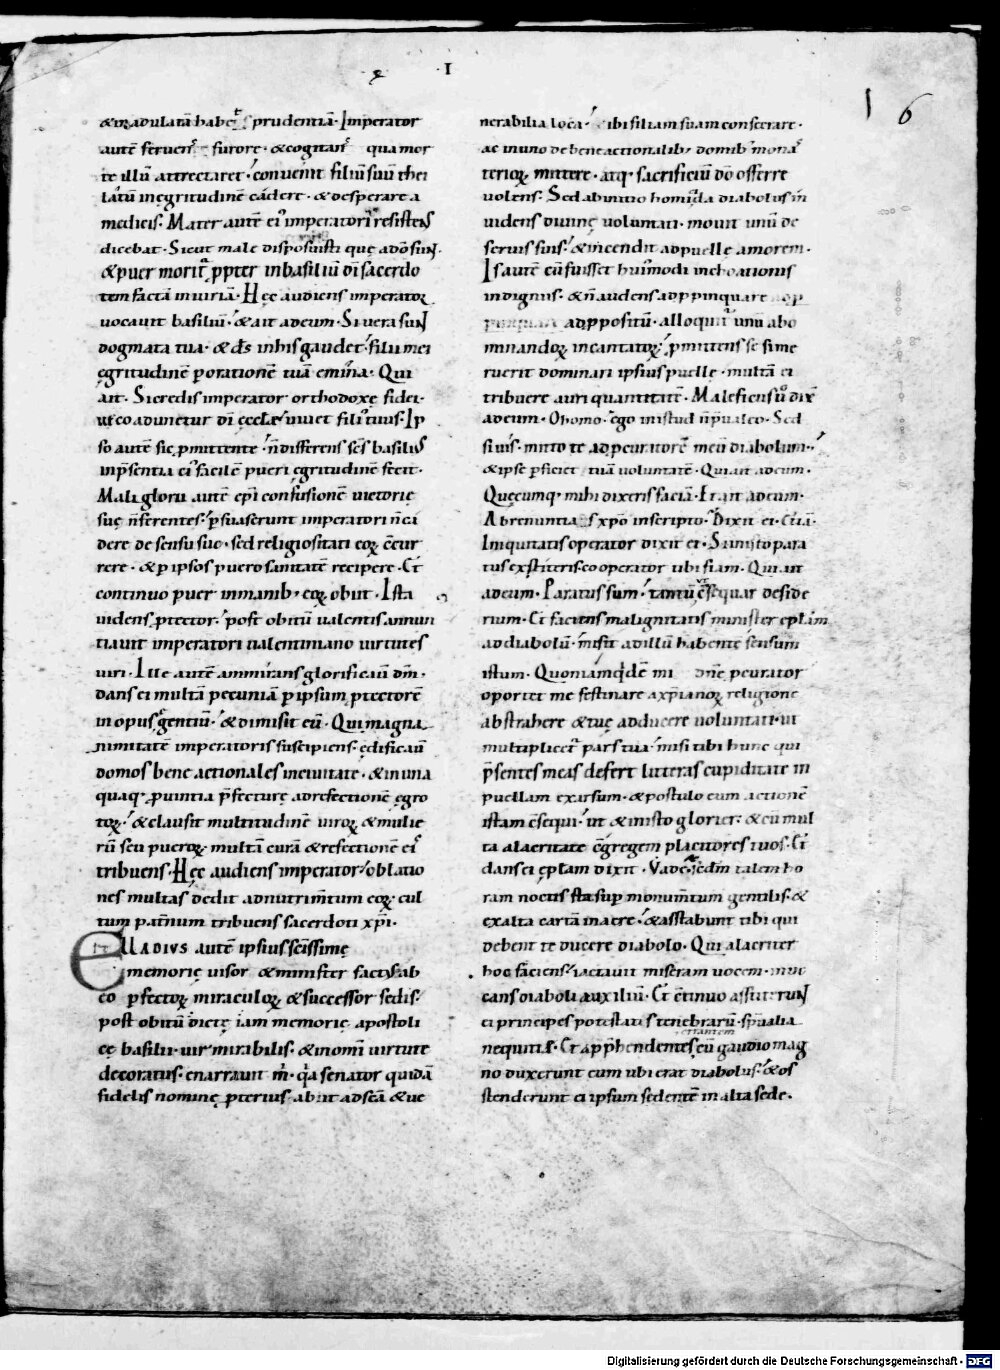 I
6
& inadulatā habet prudentiā. Imperator
autē feruens furore. & cogitans qua mor
te illū attrectaret. conuenit filiū suū thei
latū in egritudinē cadere. & desperare a
medicis. Mater autē ei imperatori resistens
dicebat. Sicut male disposuisti quę ad dm̄ sunt.
& puer morit ppter in basiliū dī sacerdo
tem factā iniuriā. Hęc audiens imperator
uocauit basiliū. & ait ad eum. Si uera sunt
dogmata tua. & ds̄ in his gaudet. filii mei
ęgritudinē p orationē tuā emīna. Qui
ait. Si credis imperator orthodoxę fidei.
ut coadunetur dī ęcclę. uiuet filius tuus. Ip
so autē sic pmittente. n̄ differens scs̄ basilius
in p̄sentia ei facilē pueri ęgritudinē fecit.
Mali glorii autē epi confusionē uictorię
suę n̄ ferentes. psuaserunt imperatori n̄ ca
dere de sensu suo. sed religiositati eoꝝ c̄cur
rere. & p ipsos puero sanitatē recipere. Et
continuo puer in manib; eoꝝ obiit. Ista
uidens ptector. post obitū ualentis annun
tiauit imperatori ualentiniano uirtutes
uiri. Ille autē ammirans glorificauit dm̄.
dans ei multā pecuniā p ipsum ptectorē
in opus egentiū. & dimisit eū. Qui magna
nimitatē imperatoris suscipiens. ędificauit
domos bene actionales in ciuitate. & in una
quaq; puintia p̄fecturę ad refectionē ęgro
toꝝ. & clausit multitudinē uiroꝝ & mulie
rū seu pueroꝝ. multā curā & refectionē eis
tribuens. Hęc audiens imperator. oblatio
nes multas dedit ad nutrimtum eoꝝ. cul
tum patnum tribuens sacerdoti xpi.
ELLADIVS autē ipsius scissime
memorię uisor & minister factus ab
eo pfectoꝝ miraculoꝝ. & successor sedis.
post obitū dictę iam memorię apostoli
cę basilii. uir mirabilis. & in omi uirtute
decoratus. enarrauit m. qa senator quidā
fidelis nominę pterius. abiit ad scā & ue
nerabilia loca. ibi filiam suam consecrare.
ac in uno de bene actionalib; domib; monas
terioꝝ mittere. atq; sacrificiū dō offerre
uolens. Sed ab initio homicida diabolus in
uidens diuinę uoluntati. mouit unū de
seruis suis. & incendit ad puellę amorem.
Is autē cū fuisset huiusmodi inchoationis
indignus. & n̄ audens adppinquare
ad ppositū. alloquit unū abo
minandoꝝ incantatoꝝ. pmittens se si me
ruerit dominari ipsius puellę. multā ei
tribuere auri quantitatē. Maleficus u dix
ad eum. O homo. ego in istud n̄ pualeo. Sed
si uis. mitto te ad pcuratorē meū diabolum.
& ipse pficiet tuā uoluntatē. Qui ait ad eum.
Quęcumq; mihi dixeris faciā. Et ait ad eum.
Abrenuntias xpo inscripto. Dixit ei. Etiā.
Iniquitatis operator dixit ei. Si in isto para
tus exstiteris. cooperator tibi fiam. Qui ait
ad eum. Paratus sum. tantū c̄sequar deside
rium. Et faciens malignitatis minister eplam
ad diabolū. misit ad illū habentē sensum
istum. Quoniam qdē mi dne pcurator
oportet me festinare a xpianoꝝ religione
abstrahere & tuę adducere uoluntati. ut
multiplicet pars tua. misi tibi hunc qui
p̄sentes meas defert litteras cupiditate in
puellam exarsum. & postulo eum actionē
istam c̄sequi. ut & in isto glorier. & cū mul
ta alacritate c̄gregem placitores tuos. Et
dans ei ęplam dixit. Vade. scdm̄ talem ho
ram noctis sta sup monumtum gentilis. &
exalta cartā in aere. & asstabunt tibi qui
debent te ducere diabolo. Qui alacriter
hoc faciens. iactauit miseram uocem. inuo
cans diaboli auxiliū. Et c̄tinuo assiterunt
ei principes potestatis tenebrarū. spualia
nequitię. Et apphendentes errantem eū gaudio mag
no duxerunt eum ubi erat diabolus. & os
stenderunt ei ipsum sedentē in alta sede.
Digitalisierung gefördert durch die Deutsche Forschungsgemeinschaft - DFG